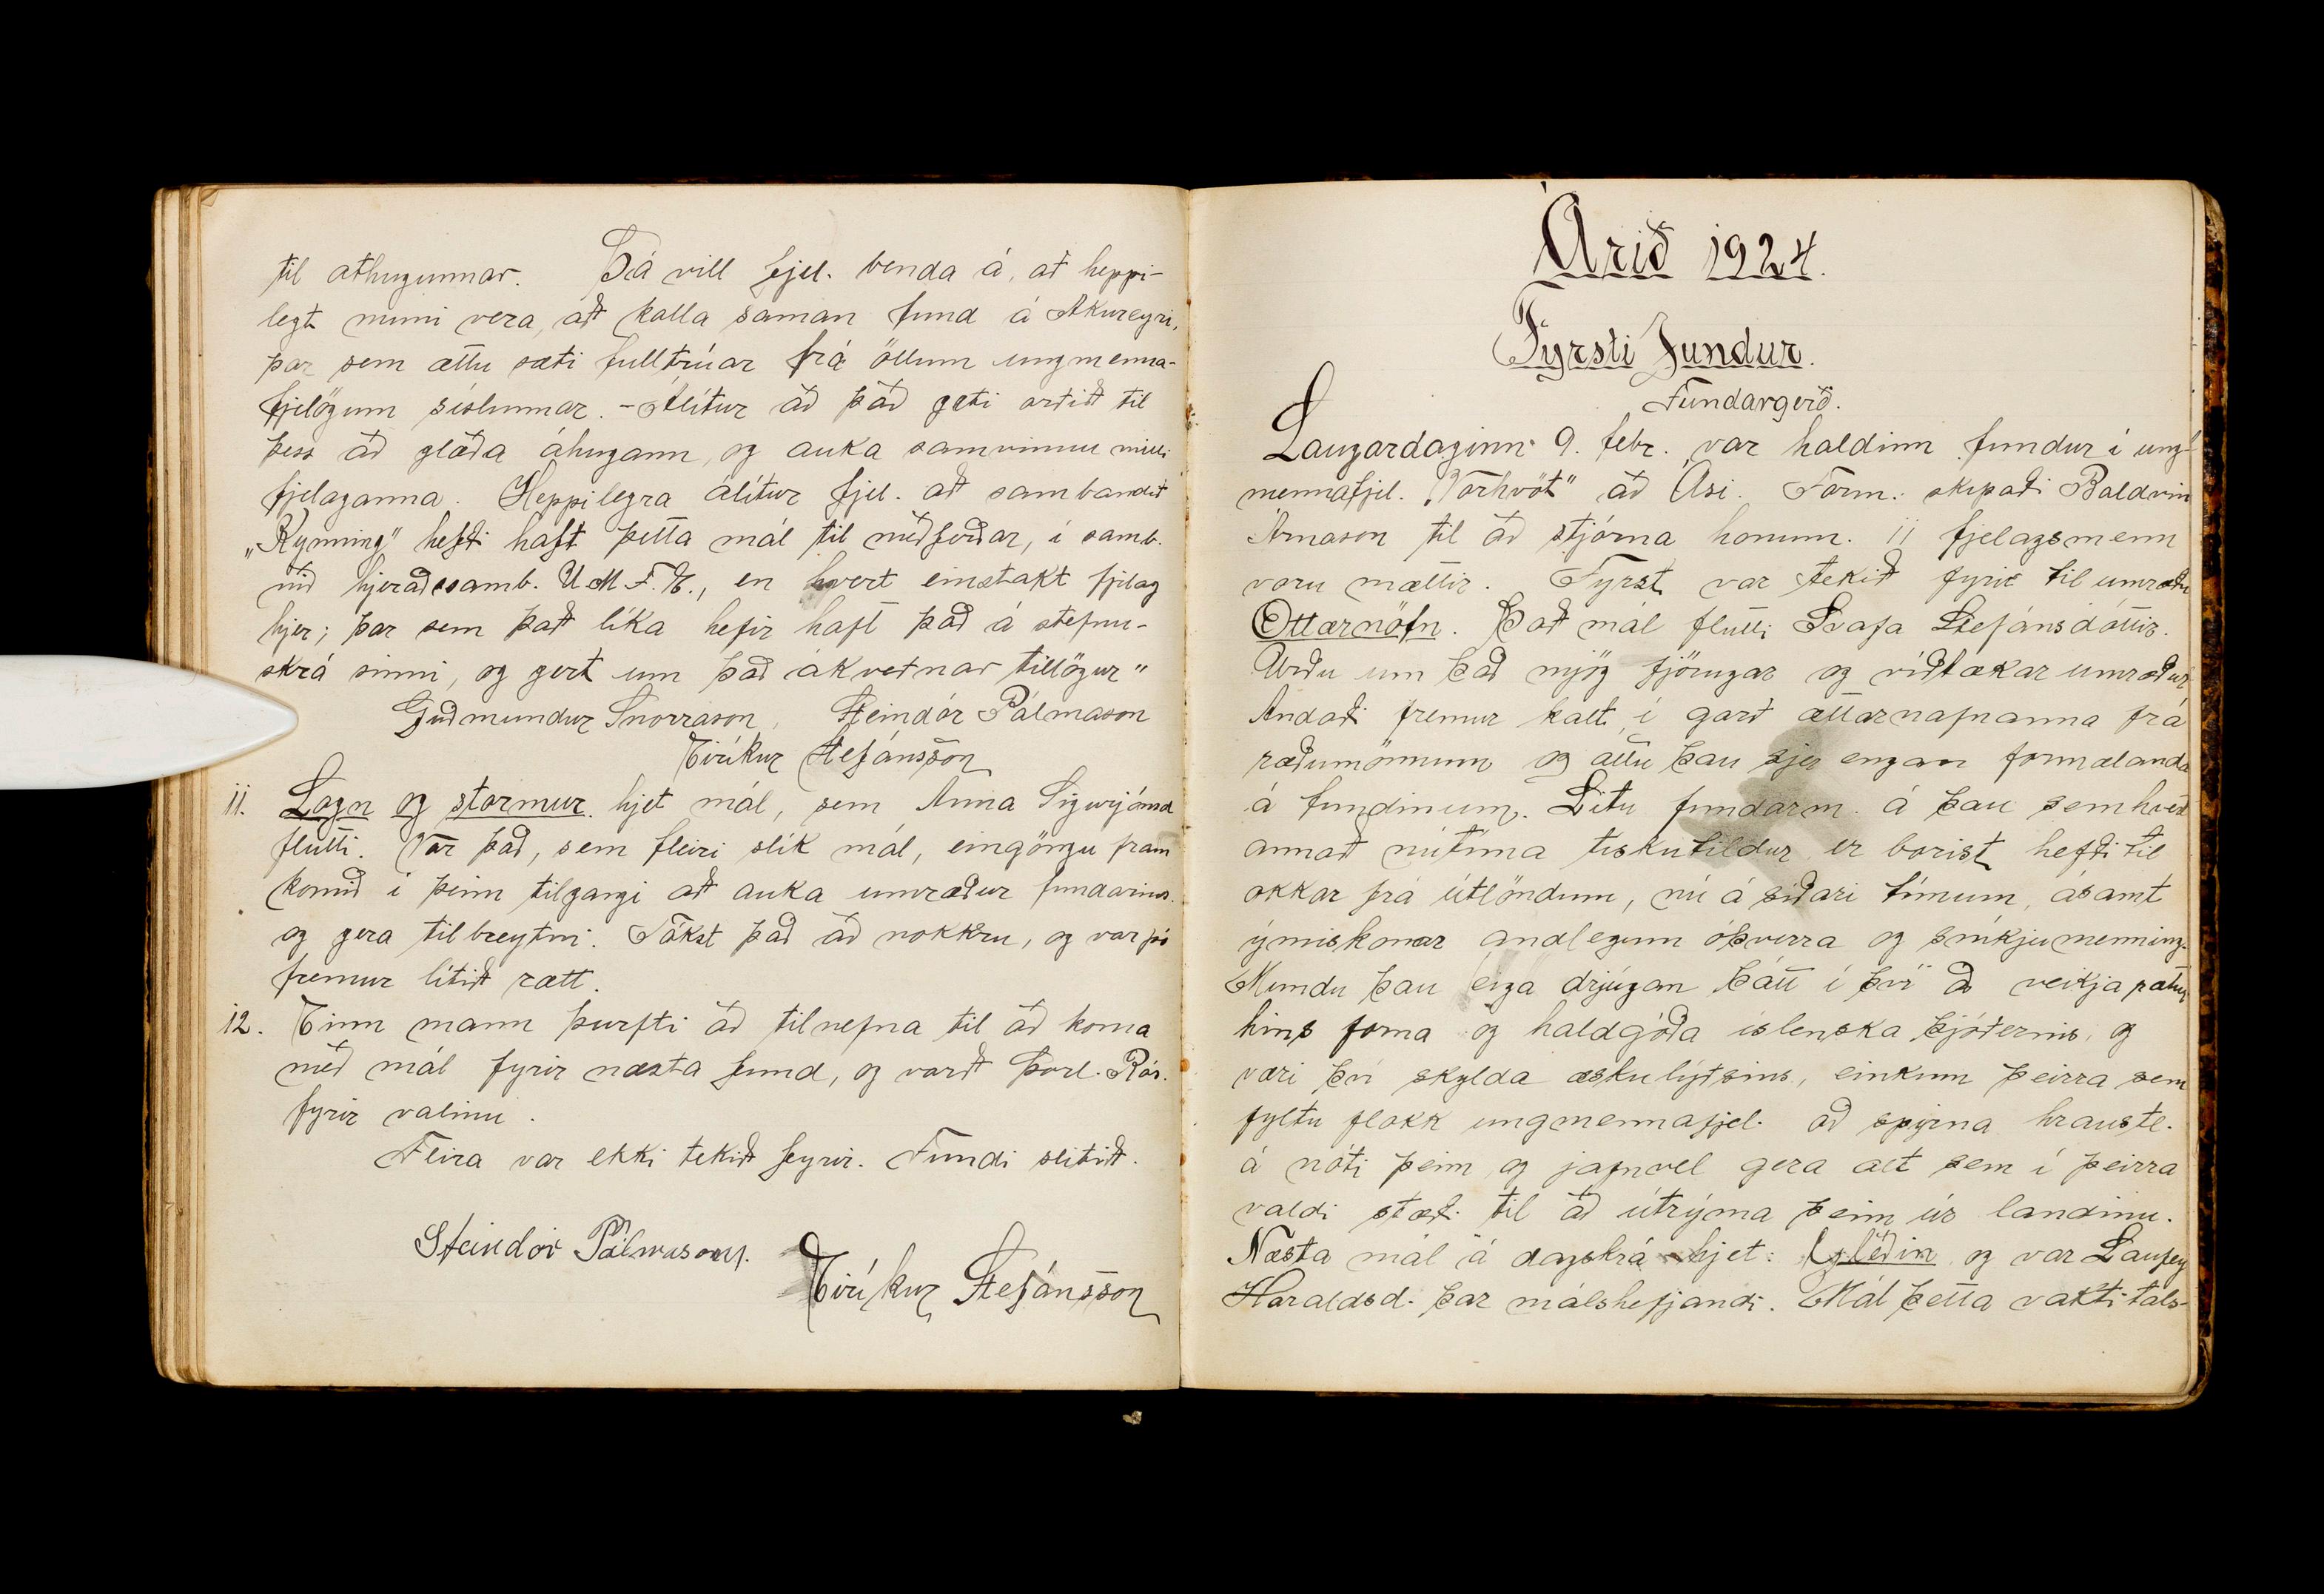 til athugunnar. Þá vill fjel. benda á, að heppi-
legt muni vera, að kalla saman fund á Akureyri,
þar sem ættu sæti fulltrúar frá öllum ungmenna-
fjelögum sýslunnar. - Álítur að það gæti orðið til
þess að glæða áhugann, og auka samvinnu milli
fjelaganna. Heppilegra álítur fjel. að sambandið
„Kynning" hefði haft þetta mál til meðferðar, í samb.
við hjeraðssamb. U.M.F.E., en hvert einstakt fjelag
hjer; þar sem það líka hefir haft það á stefnu-
skrá sinni, og gert um það ákveðnar tillögur"
Guðmundur Snorrason, Steindór Pálmason
Eiríkur Stefánsson
11. Logn og stormur hjet mál, sem Anna Sigurjónsd
flutti. Var það, sem fleiri slík mál, eingöngu fram
komið í þeim tilgangi að auka umræður fundarins.
og gera tilbreytni. Tókst það að nokkru, og var þó
fremur lítið rætt.
12. Einn mann þurfti að tilnefna til að koma
með mál fyrir næsta fund, og varð Þorl. Rós.
fyrir valinu.
Fleira var ekki tekið fyrir. Fundi slitið.
Steindór Pálmason.
Eiríkur Stefánsson
Árið 1924.
Fyrsti Fundur.
Fundargerð.
Laugardaginn 9. febr. var haldinn fundur í ung-
mennafjel. „Vorhvöt" að Ási. Form. skipaði Baldvin
Árnason til að stjórna honum. 11 fjelagsmenn
voru mættir. Fyrst var tekið fyrir til umræðu
Ættarnöfn. Það mál flutti Svafa Stefánsdóttir.
Urðu um það mjög fjörugar og víðtækar umræður
Andaði fremur kalt í garð ættarnafnanna frá
ræðumönnum og áttu þau sjer engan formælanda
á fundinum. Litu fundarm. á þau sem hvert
annað nútíma tískutildur er borist hefði til
okkar frá útlöndum, nú á síðari tímum, ásamt
ýmiskonar andlegum óþverra og sníkjumenning.
Mundu þau eiga drjúgan þátt í því að veikja rætur
hins forna og haldgóða íslenska þjóðernis, og
væri því skylda æskulýðsins, einkum þeirra sem
fyltu flokk ungmennafjel. að spyrna hraustl.
á móti þeim og jafnvel gera alt sem í þeirra
valdi stæði til að útrýma þeim úr landinu.
Næsta mál á dagskrá hjet: Gleðin og var Laufey
Haraldsd. þar málshefjandi. Mál þetta vakti tals-